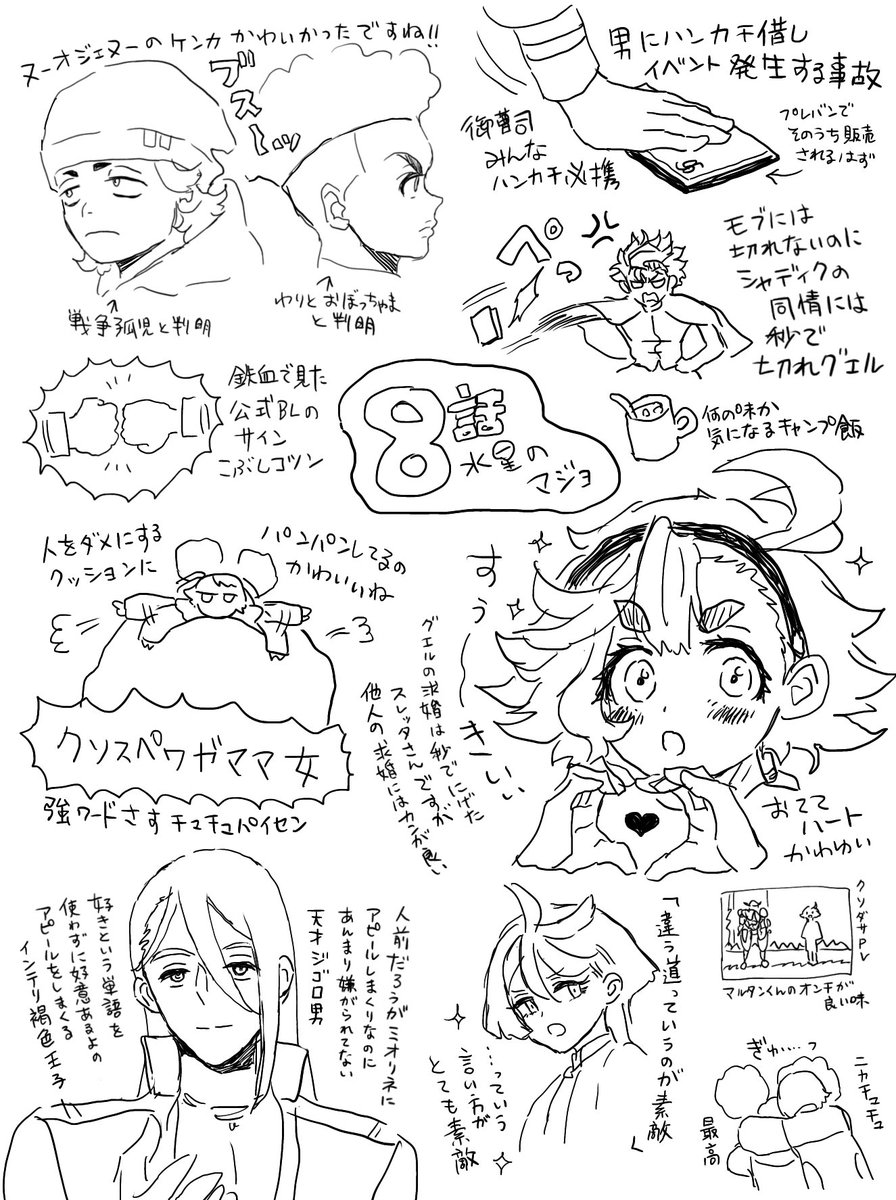 ヌーオジェヌーのケンカかわいかったですね!!
ブスーッ
↑
戦争孤児と判明
↑
わりとおぼっちゃま
と判明
男にハンカチ借し
イベント発生する事故
御曹司
みんな
ハンカチ必携
プレバンで
そのうち販売
されるはず
モブには
切れないのに
シャディクの
同情には
秒で
切れグエル
ペっ
鉄血で見た
公式BLの
サイン
こぶしコツン
8話
水星の
マジョ
何の味か
気になるキャンプ飯
人をダメにする
クッションに
パンパンしてるの
かわいいね
クソスペワガママ女
強ワードさすチュチュパイセン
すぅーきいい
グエルの求婚は秒でにげた
スレッタさんですが
他人の求婚にはカンが良い
おてて
ハート
かわゆい
好きという単語を
使わずに好意あるよの
アピールをしまくる
インテリ褐色王子
人前だろうがミオリネに
アピールしまくりなのに
あんまり嫌がられてない
天才ジゴロ男
「違う道っていうのが素敵」
…っていう
言い方が
とても素敵
クソダサPV
マルタンくんのオンチが
良い味
ぎゅ…っ
ニカチュチュ
最高